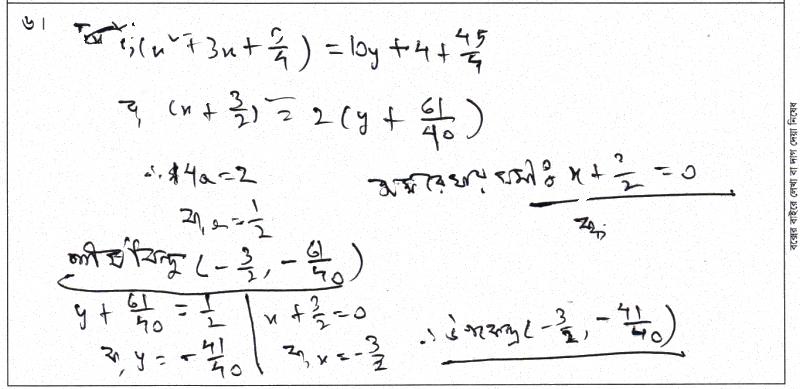 ৬।
(x² + 3x + 9/4) = 10y + 4 + 45/4
বা, (x + 3/2)² = 2(y + 61/40)
∴ 4a = 2
বা, a = 1/2
অক্ষরেখার সমী: x + 3/2 = 0
বা,
শীর্ষবিন্দু (-3/2, -61/40)
y + 61/40 = 1/2
বা, y = -41/40
x + 3/2 = 0
বা, x = -3/2
∴ উপকেন্দ্র (-3/2, -41/40)
বক্সের বাইরে লেখা বা দাগ দেয়া নিষেধ